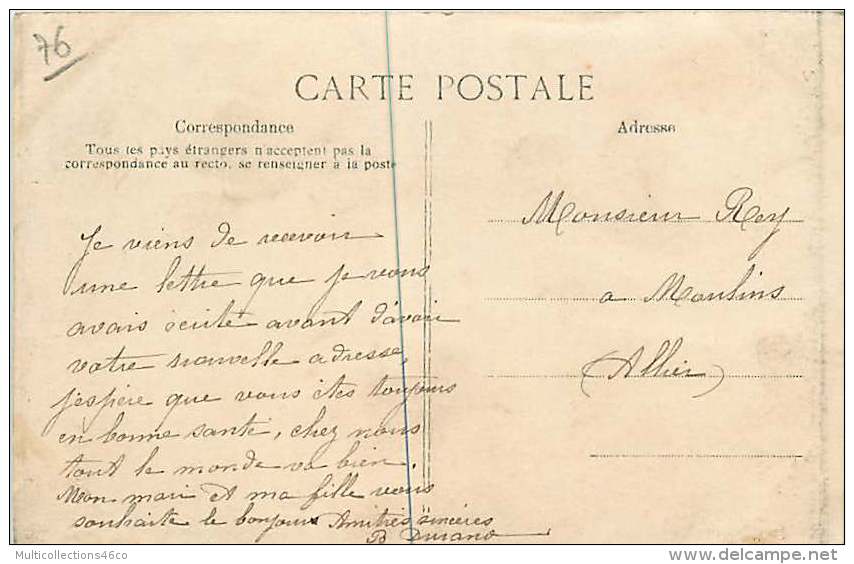 76
CARTE POSTALE
Correspondance
Tous les pays étrangers n'acceptent pas la
correspondance au recto, se renseigner a la poste
Je viens de recevoir
une lettre que je vous
avais écrite avant d'avoir
votre nouvelle adresse,
j'espère que vous êtes toujours
en bonne santé, chez nous
tout le monde va bien.
Mon mari et ma fille vous
souhaite le bonjour Amitiés sincères
B Durand
Adresse
Monsieur Rey
a Moulins
(Allier)
Multicollections46co
delcampe.net